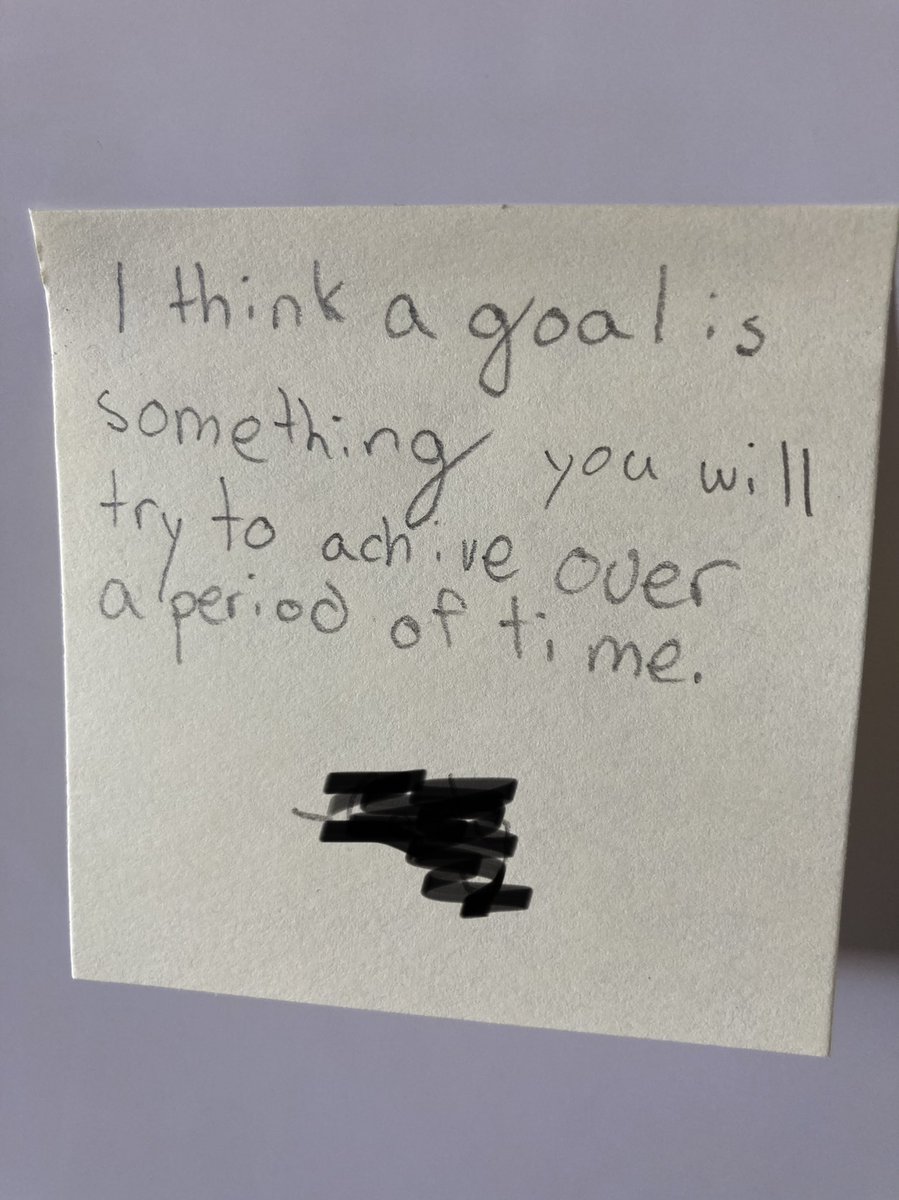 I think a goal is
something you will
try to achive over
a period of time.